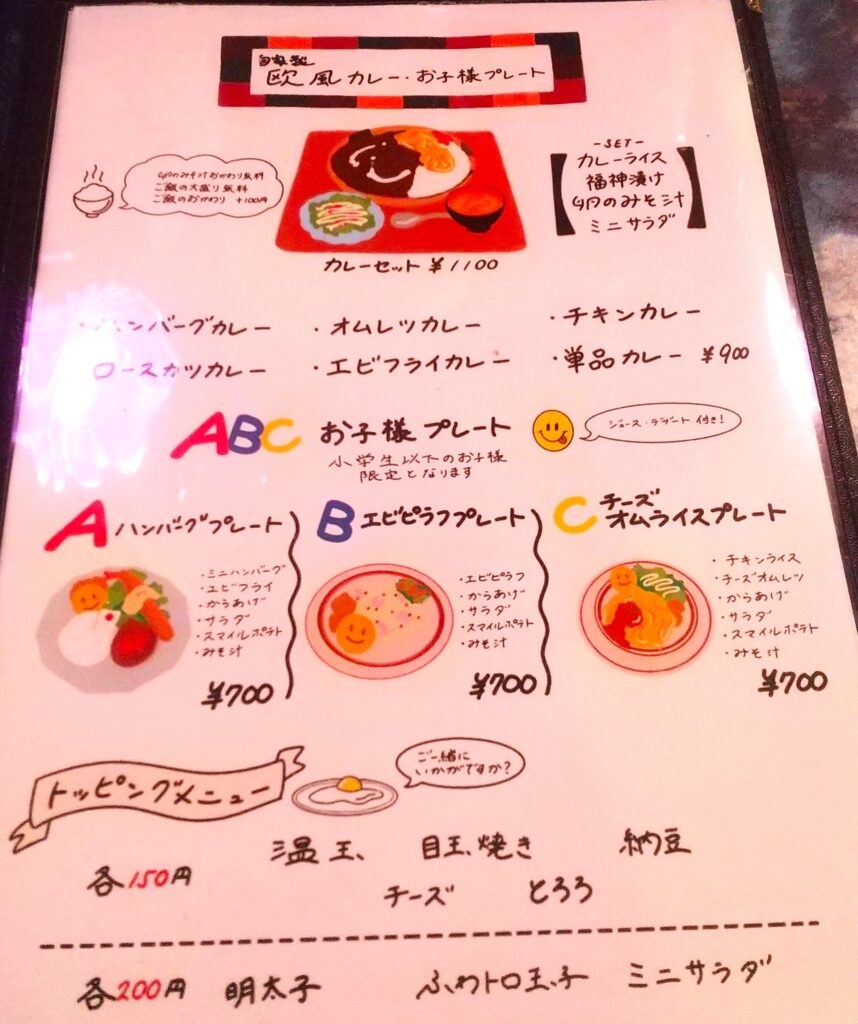 自家製
欧風カレー・お子様プレート
卵のみそ汁おかわり無料
ご飯の大盛り無料
ご飯のおかわり +100円
-SET-
カレーライス
福神漬け
卵のみそ汁
ミニサラダ
カレーセット ¥1100
・ハンバーグカレー ・オムレツカレー ・チキンカレー
ロースカツカレー ・エビフライカレー ・単品カレー ¥900
ABC お子様プレート
ジュース・デザート付き!
小学生以下のお子様
限定となります
A ハンバーグプレート
・ミニハンバーグ
・エビフライ
・からあげ
・サラダ
・スマイルポテト
・みそ汁
¥700
B エビピラフプレート
・エビピラフ
・からあげ
・サラダ
・スマイルポテト
・みそ汁
¥700
C チーズ
オムライスプレート
・チキンライス
・チーズオムレツ
・からあげ
・サラダ
・スマイルポテト
・みそ汁
¥700
トッピングメニュー
ご一緒に
いかがですか?
各150円 温玉 目玉焼き 納豆
チーズ とろろ
各200円 明太子 ふわトロ玉子 ミニサラダ